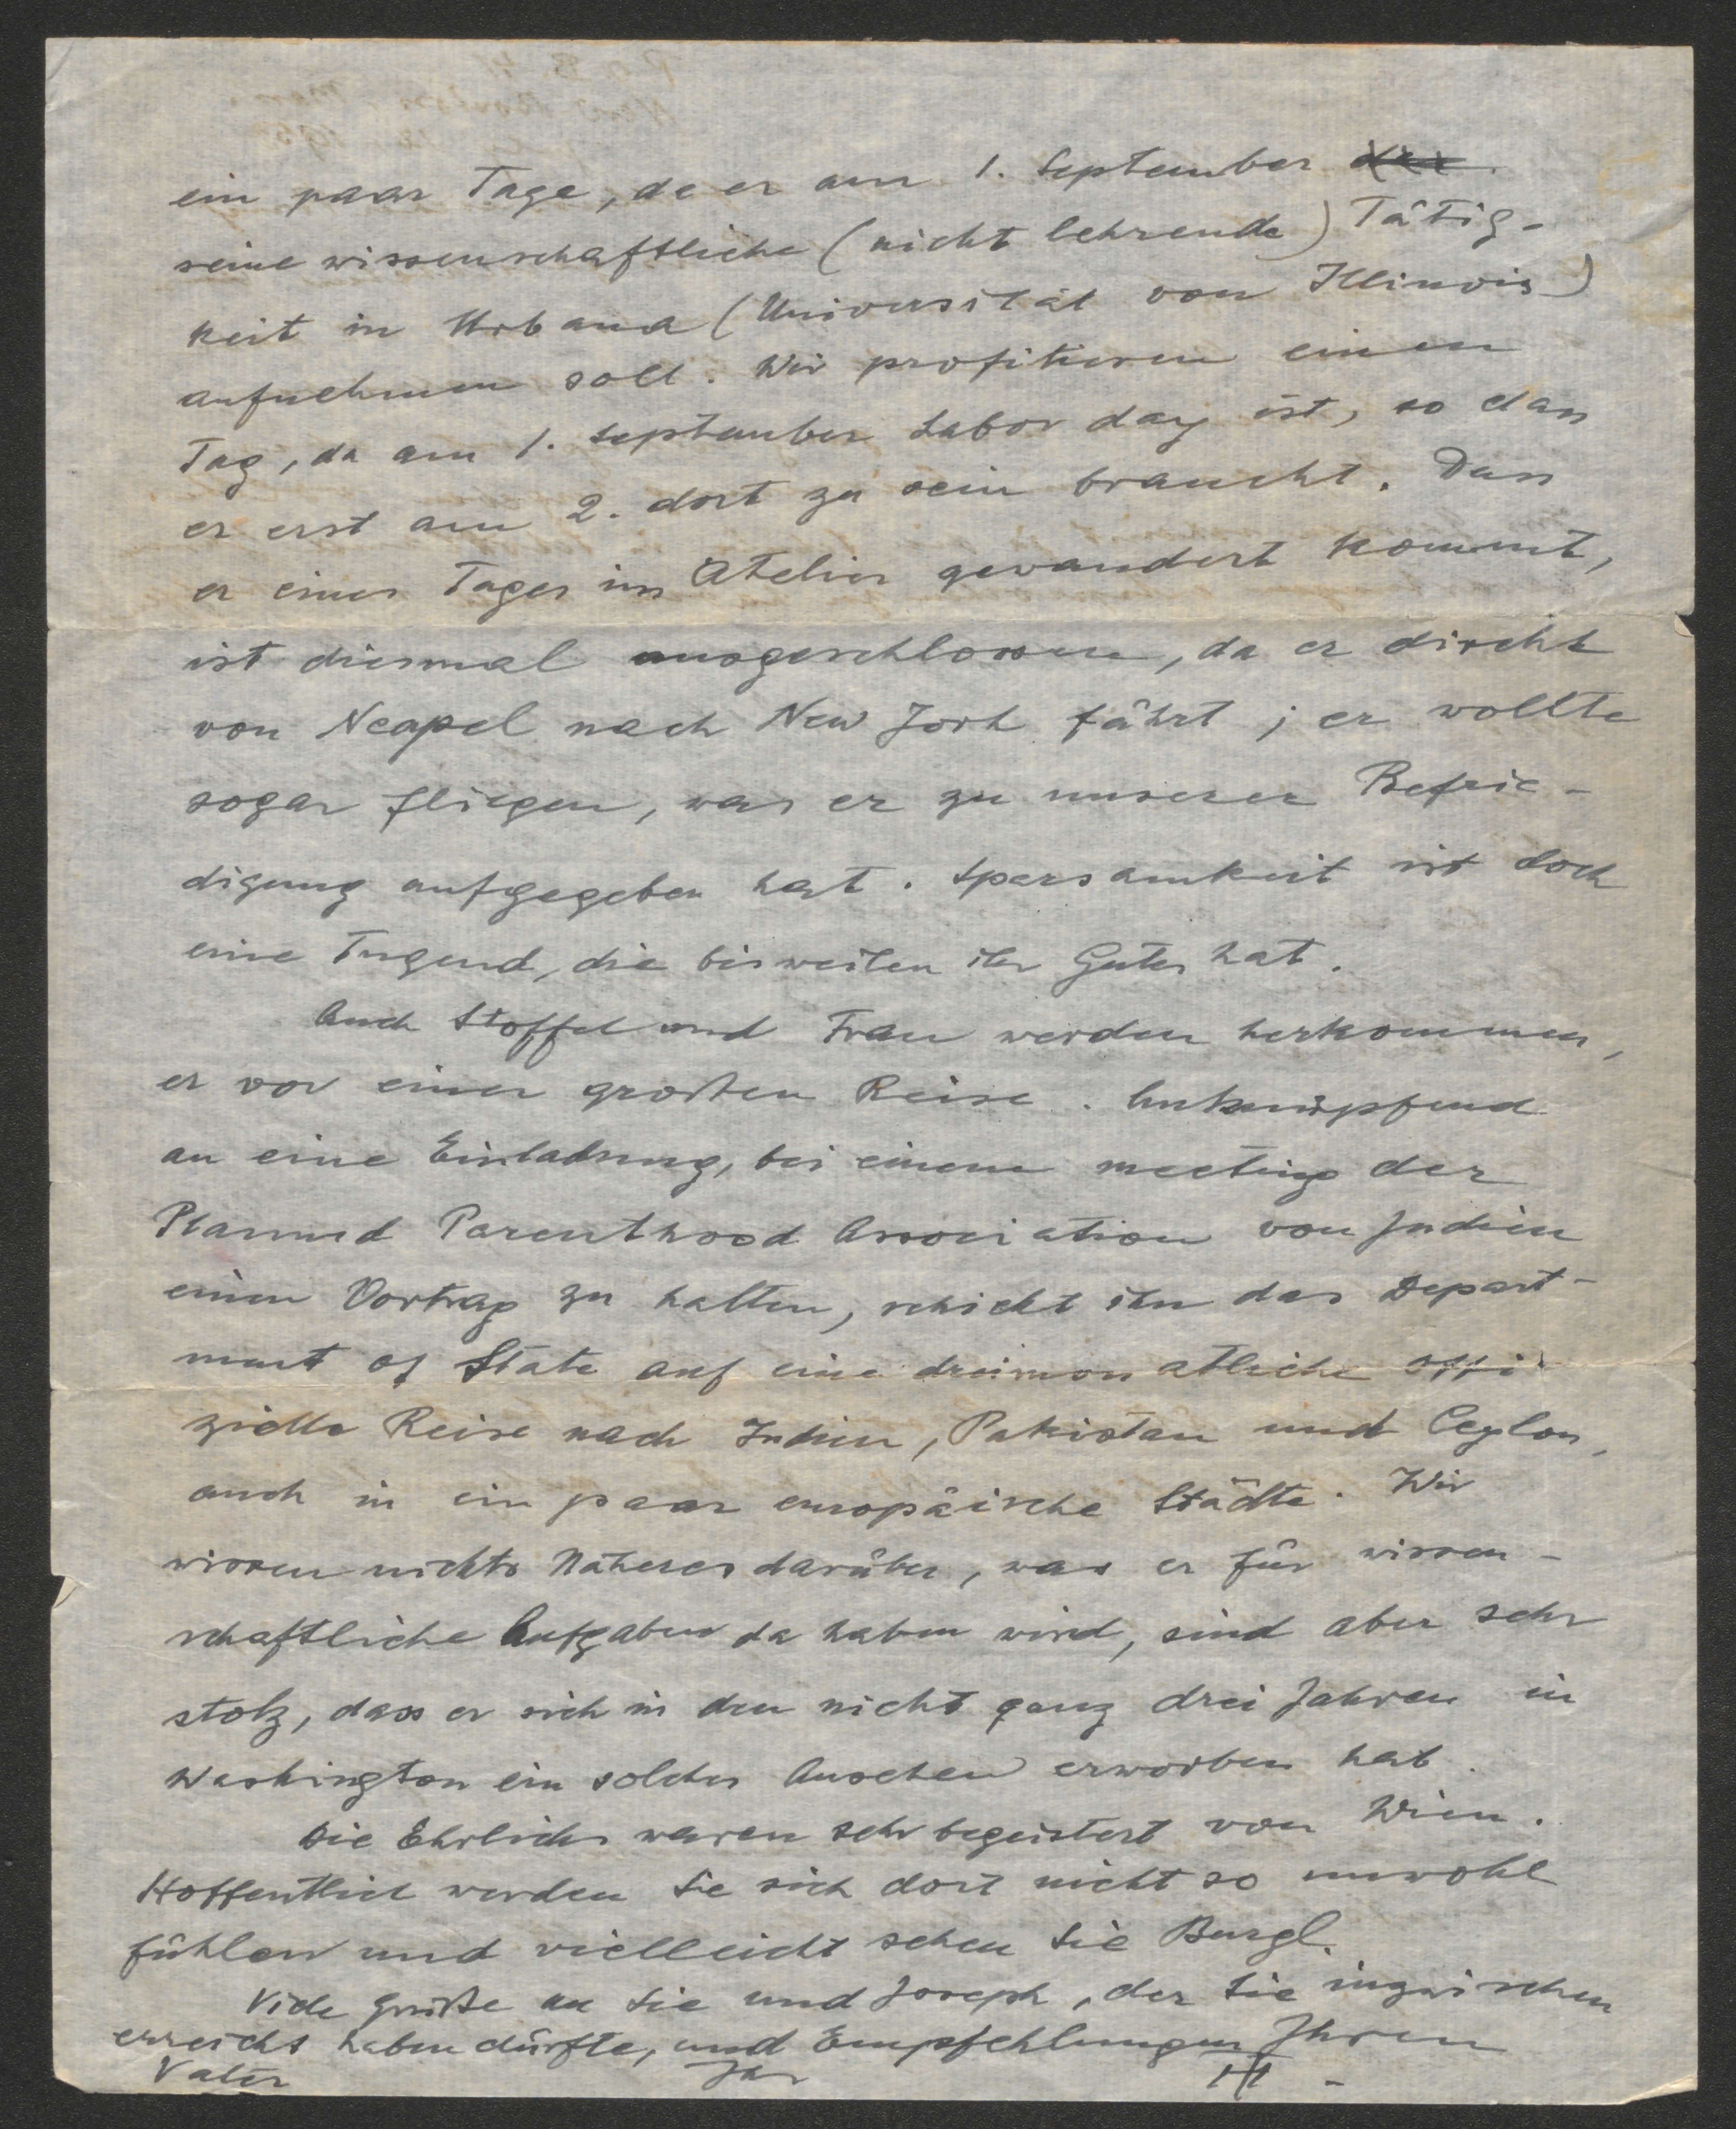 ein paar Tage, da er am 1. September
seine wissenschaftliche (nicht lehrende) Tätig-
keit in Urbana (Universität von Illinois)
aufnehmen soll. Wir profitieren einen
Tag, da am 1. September Labor day ist, so dass
er erst am 2. dort zu sein braucht. Dass
er eines Tages ins Atelier gewandert kommt,
ist diesmal ausgeschlossen, da er direkt
von Neapel nach New York fährt; er wollte
sogar fliegen, was er zu unserer Befrie-
digung aufgegeben hat. Sparsamkeit ist doch
eine Tugend, die bisweilen ihr Gutes hat.
Auch Stoffel und Frau werden herkommen,
er vor einer großen Reise. Anknüpfend
an eine Einladung, bei einem meeting der
Planned Parenthood Association von Indien
einen Vortrag zu halten, schickt ihn das Depart-
ment of State auf eine dreimonatliche offi-
zielle Reise nach Indien, Pakistan und Ceylon,
auch in ein paar europäische Städte. Wir
wissen nichts Näheres darüber, was er für wissen-
schaftliche Aufgaben da haben wird, sind aber sehr
stolz, dass er sich in den nicht ganz drei Jahren in
Washington ein solches Ansehen erworben hat.
Die Ehrlichs waren sehr begeistert von Wien.
Hoffentlich werden Sie sich dort nicht so unwohl
fühlen und vielleicht sehen Sie Burgl.
Viele Grüße an Sie und Joseph, der Sie inzwischen
erreicht haben dürfte, und Empfehlungen Ihrem
Vater Ihr H -